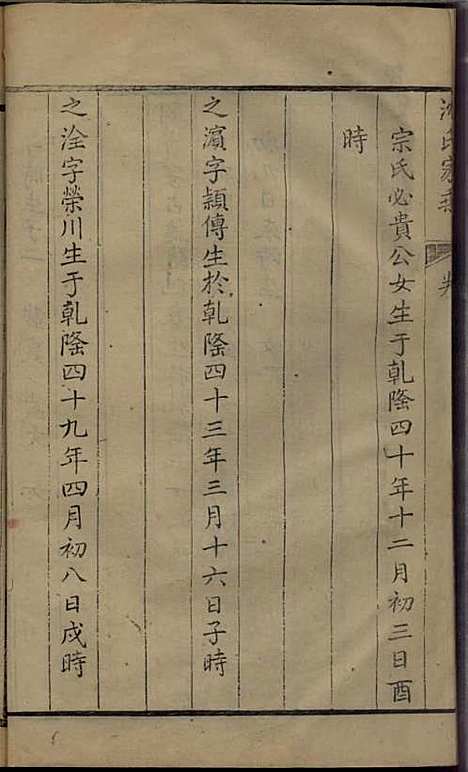 氏家乘
宗氏必貴公女生于乾隆四十年十二月初三日酉
時
之濵字頴傳生於乾隆四十三年三月十六日子時
之洤字榮川生于乾隆四十九年四月初八日戌時